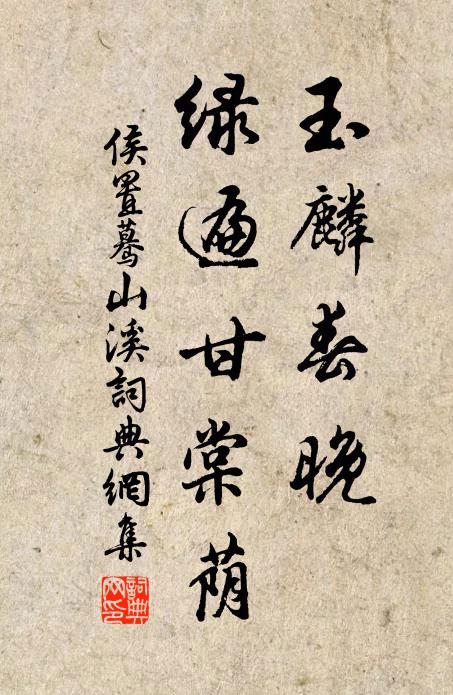 玉麟春晚
绿遍甘棠荫
侯置蓦山溪詞典網集
詞典网印